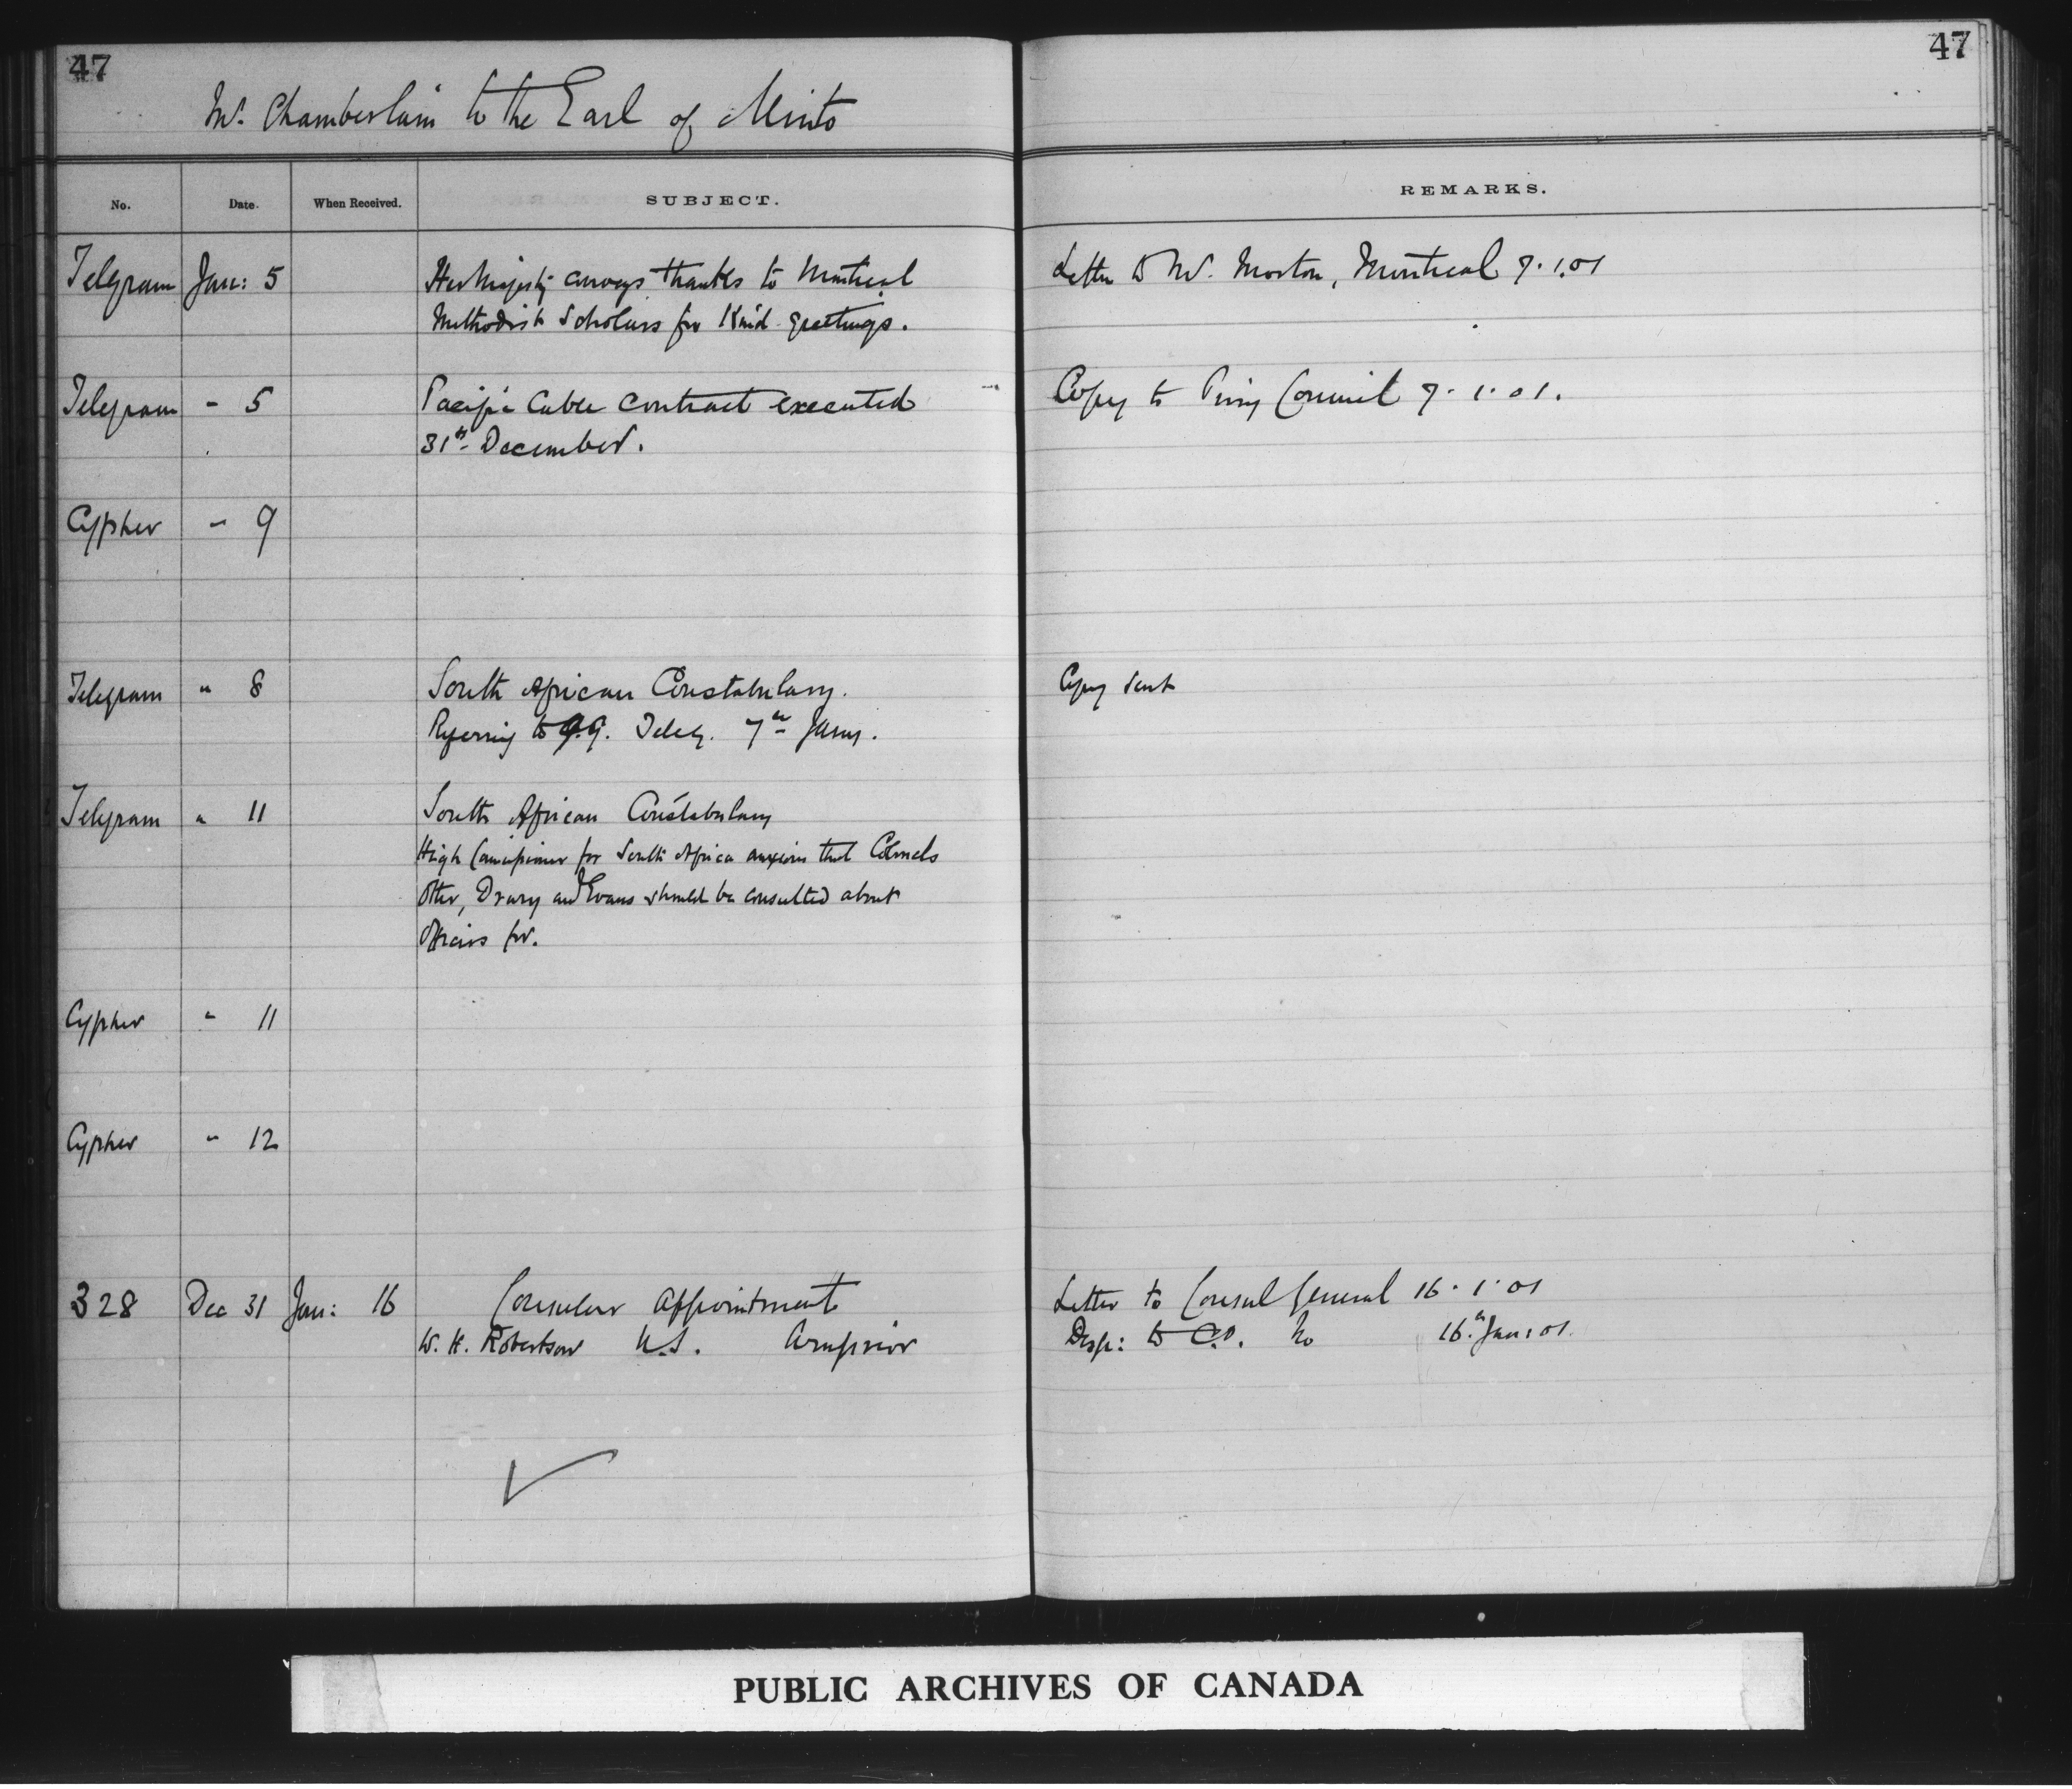 47
47
Mr. Chamberlain to the Earl of Minto
No. Date. When Received. SUBJECT. REMARKS.
Telegram Jan: 5 Her Majesty conveys thanks to Montreal Letter to Mr. Morton, Montreal 7.1.01
Methodist Scholars for Kind greetings.
Telegram " 5 Pacific Cable contract executed Copy to Privy Council 7.1.01.
31st December.
Cypher " 9
Telegram " 8 South African Constabulary. Copy sent
Referring to G.G. Teleg. 7th Jany.
Telegram " 11 South African Constabulary
High Commissioner for South Africa anxious that Colonels
Otter, Drury and Evans should be consulted about
Officers for.
Cypher " 11
Cypher " 12
328 Dec 31 Jan: 16 Consular Appointment Letter to Consul General 16.1.01
W. H. Robertson U.S. Arnprior Desp: to C.O. No 16th Jan: 01.
PUBLIC ARCHIVES OF CANADA